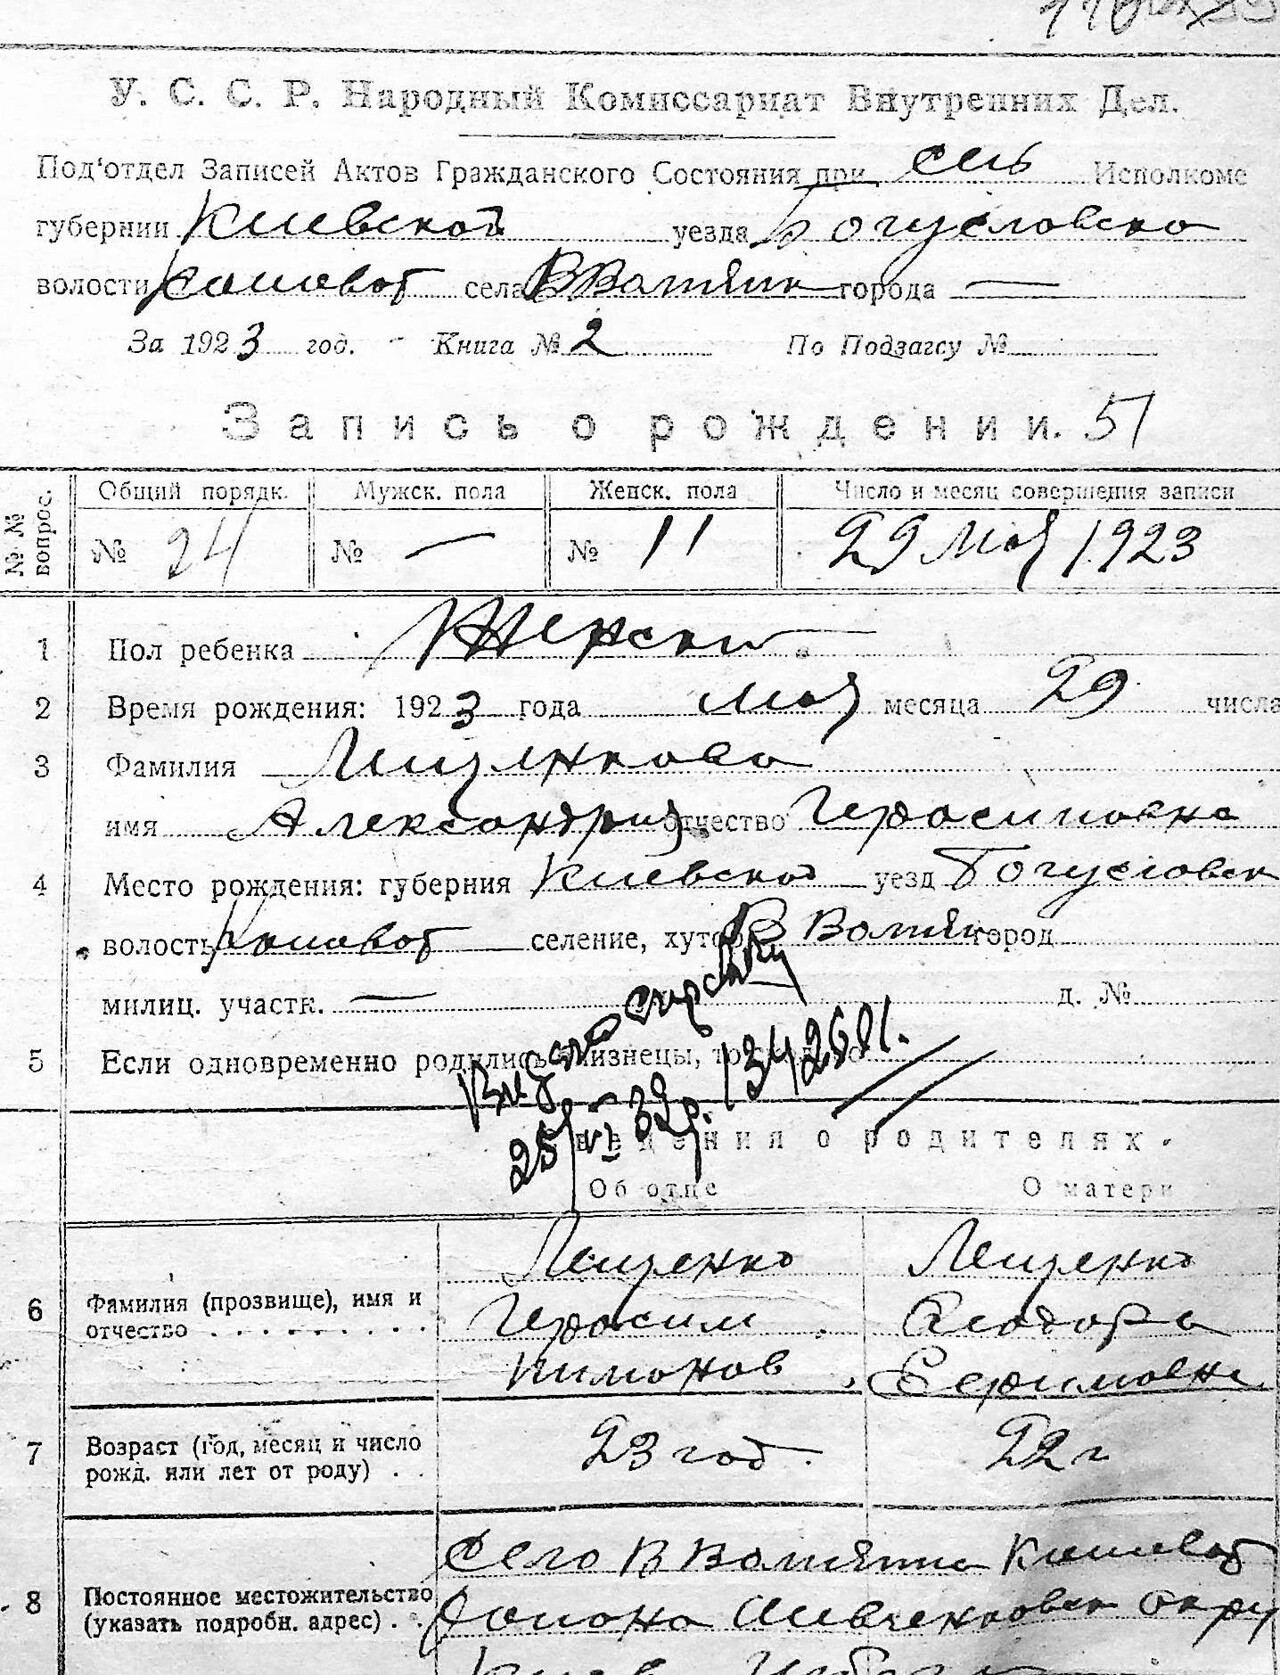 У. С. С. Р. Народный Комиссариат Внутренних Дел.
Под'отдел Записей Актов Гражданского Состояния при сель Исполкоме
губернии Киевской уезда Богусловско
волости села города —
За 1923 год. Книга № 2 По Подзагсу №
Запись о рождении. 51
№№ вопрос. Общий порядк. Мужск. пола Женск. пола Число и месяц совершения записи
№ 24 № — № 11 29 Мая 1923
1 Пол ребенка Женски
2 Время рождения: 1923 года мая месяца 29 числа
3 Фамилия
имя Александрия отчество Герасимовна
4 Место рождения: губерния Киевской уезд Богусловск
волость селение, хутор город
милиц. участк. — д. №
5 Если одновременно родились близнецы, то
Выдано справку
25/VI 32р. 134/2681.
Сведения о родителях.
Об отце О матери
6 Фамилия (прозвище), имя и отчество
Лещенко Лещенко
Герасим Феодора
Пимонов Евфимовна
7 Возраст (год, месяц и число рожд. или лет от роду) 23 год. 22 г
8 Постоянное местожительство (указать подробн. адрес)
Село
района Шевченковск окру
Киев